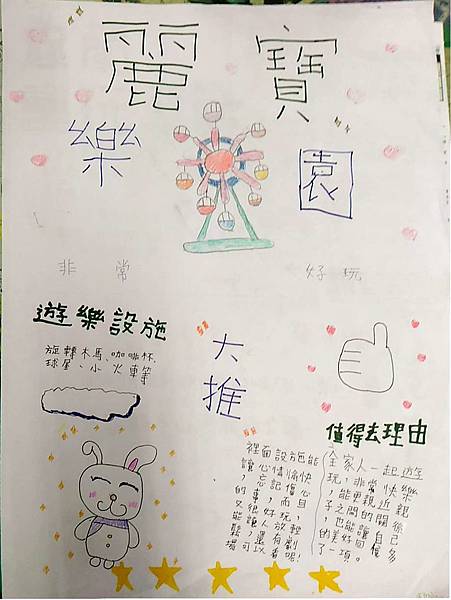 麗寶
樂園
非常好玩
遊樂設施
旋轉木馬、咖啡杯、
球屋、小火車等
大推
裡面設施能
讓心情愉快
,忘記傷心
的事,而且
又很好玩,
能讓人放輕
鬆,還有劇
場可以看喔!
值得去理由
全家人一起遊
玩,非常快樂
,能更親近親
子之間的關係
,也能讓自己
的美
了一項。